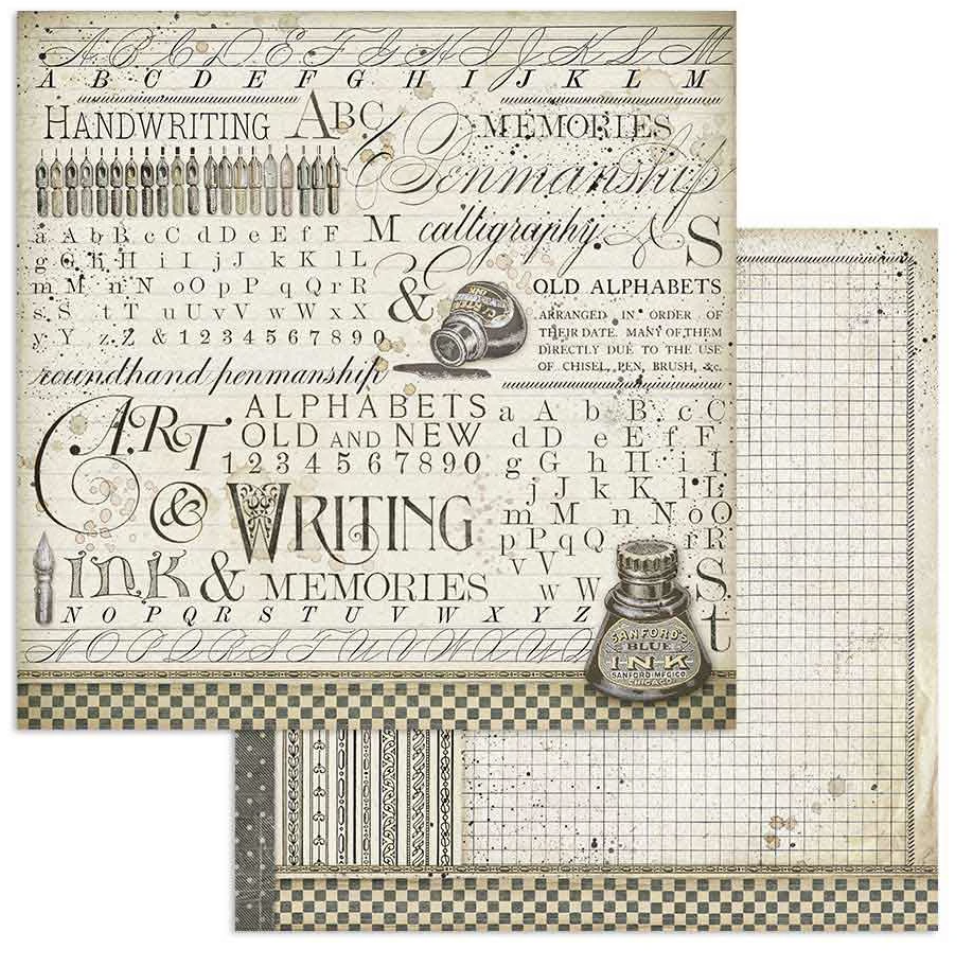 A B C D E F G H I J K L M
A B C D E F G H I J K L M
HANDWRITING ABC MEMORIES
Penmanship
a A b B c C d D e E f F M calligraphy A S
g G h H i I j J k K l L
m M n N o O p P q Q r R & OLD ALPHABETS
s S t T u U v V w W x X ARRANGED IN ORDER OF
y Y z Z & 1 2 3 4 5 6 7 8 9 0 THEIR DATE. MANY OF THEM
DIRECTLY DUE TO THE USE
OF CHISEL, PEN, BRUSH, &c.
INK
roundhand penmanship
ART
ALPHABETS
OLD AND NEW
1 2 3 4 5 6 7 8 9 0
a A b B c C
d D e E f F
g G h H i I
j J k K l L
m M n N o O
p P q Q r R
v V
w W
S
t
& WRITING
INK & MEMORIES
N O P Q R S T U V W X Y Z
N O P Q R S T U V W X U Z
SANFORD'S
BLUE
INK
SANFORD MFG CO
CHICAGO